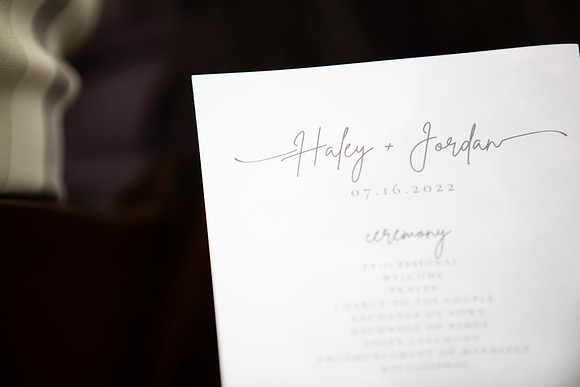 Haley + Jordan
07.16.2022
ceremony
PROCESSIONAL
WELCOME
PRAYER
CHARGE TO THE COUPLE
EXCHANGE OF VOWS
EXCHANGE OF RINGS
UNITY CEREMONY
PRONOUNCEMENT OF MARRIAGE
RECESSIONAL